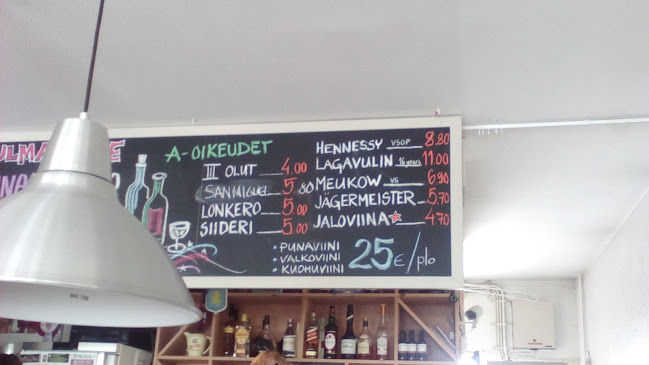 A-OIKEUDET
III OLUT 4.00
SAN MIGUEL 5.80
LONKERO 5.00
SIIDERI 5.00
HENNESSY VSOP 8.80
LAGAVULIN 16 years 11.00
MEUKOW VS 6.90
JÄGERMEISTER 5.70
JALOVIINA 4.70
• PUNAVIINI
• VALKOVIINI
• KUOHUVIINI
25€/plo